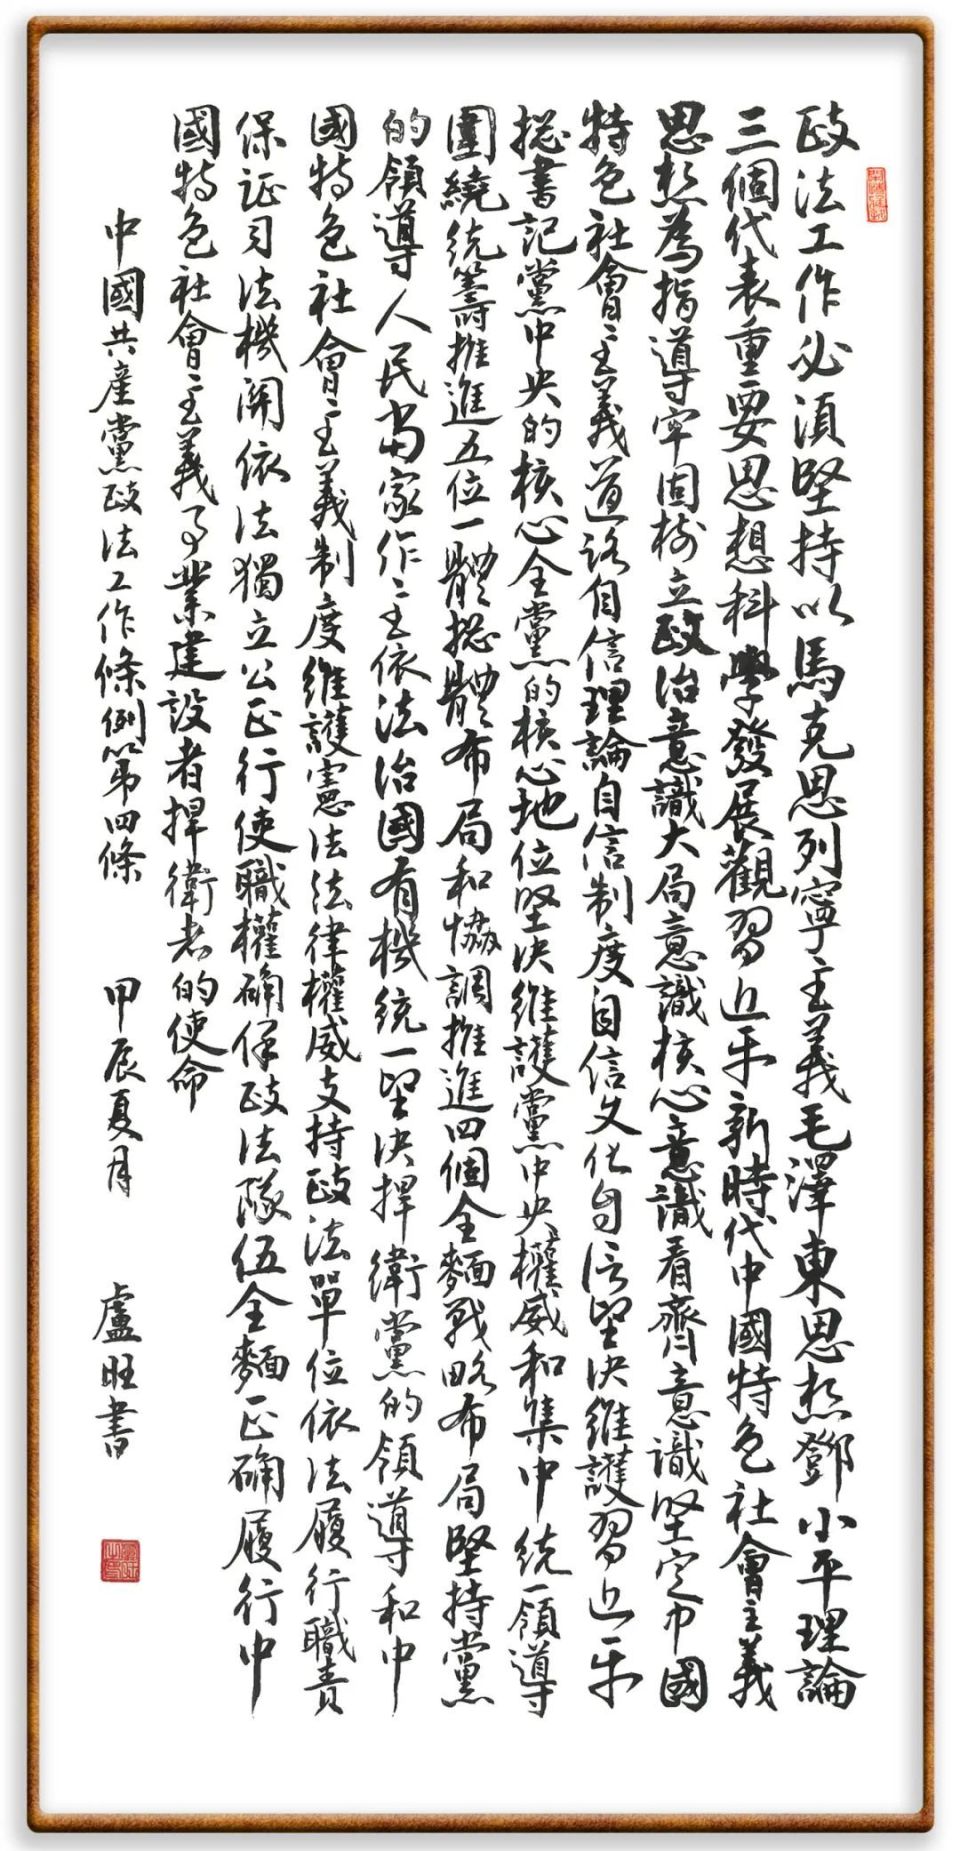 政法工作必須堅持以馬克思列寧主義毛澤東思想鄧小平理論
三個代表重要思想科學發展觀習近平新時代中國特色社會主義
思想為指導牢固樹立政治意識大局意識核心意識看齊意識堅定中國
特色社會主義道路自信理論自信制度自信文化自信堅決維護習近平
總書記黨中央的核心全黨的核心地位堅決維護黨中央權威和集中統一領導
圍繞統籌推進五位一體總體布局和協調推進四個全麵戰略布局堅持黨
的領導人民當家作主依法治國有機統一堅決捍衛黨的領導和中
國特色社會主義制度維護憲法法律權威支持政法單位依法履行職責
保证司法機關依法獨立公正行使職權确保政法隊伍全麵正确履行中
國特色社會主義事業建設者捍衛者的使命
中國共產黨政法工作條例第四條 甲辰夏月 盧旺書